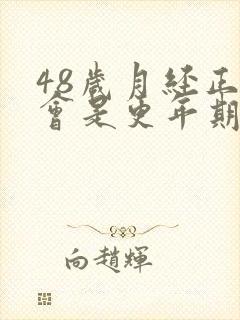 48歲月経正
會是更年期
向趙輝